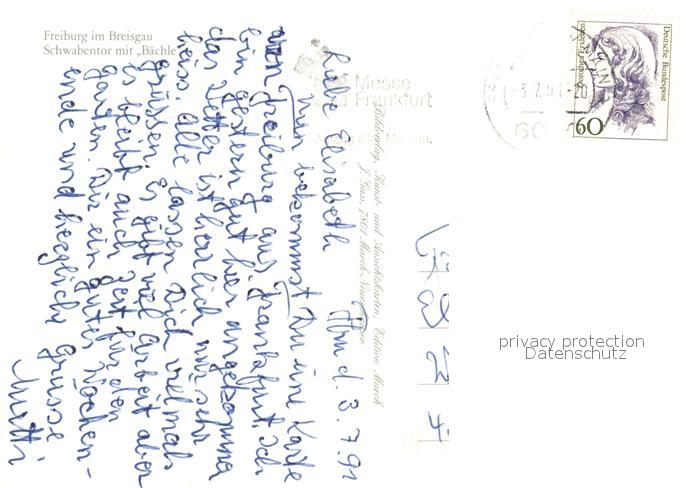 Freiburg im Breisgau
Schwabentor mit „Bächle"
Messe
Frankfurt
Deutsche Bundespost
60
-3.7.91-20
60
Ffm d. 3.7.91
Liebe Elisabeth
Nun bekommst Du eine Karte
von Freiburg aus Frankfurt. Ich
bin gestern gut hier angekommen
das Wetter ist herrlich nur sehr
heiss. Alle lassen Dich vielmals
grüssen. Es gibt viel Arbeit aber
es bleibt auch Zeit für den
Garten. Dir ein gutes Wochen-
ende und herzliche Grüsse
Mutti
privacy protection
Datenschutz